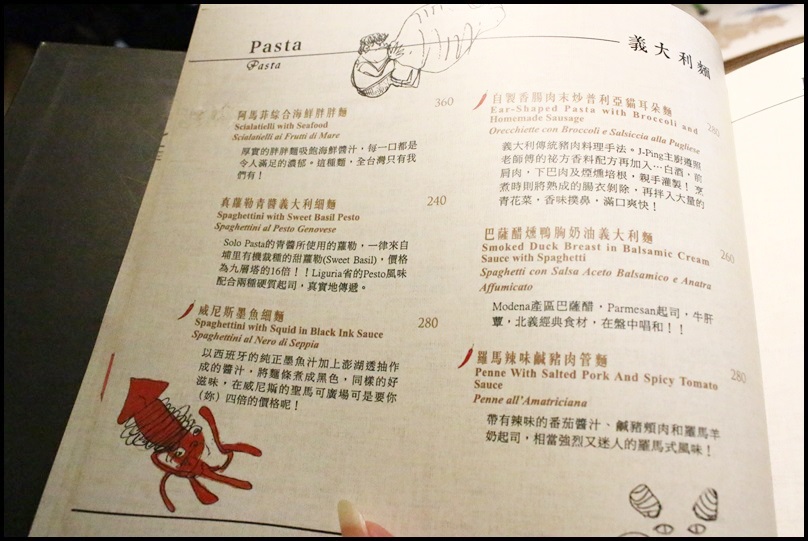 Pasta
Pasta
義大利麵
阿馬菲綜合海鮮胖胖麵 360
Scialatielli with Seafood
Scialatielli ai Frutti di Mare
厚實的胖胖麵吸飽海鮮醬汁，每一口都是
令人滿足的濃郁。這種麵，全台灣只有我
們有！
真蘿勒青醬義大利細麵 240
Spaghettini with Sweet Basil Pesto
Spaghettini al Pesto Genovese
Solo Pasta的青醬所使用的蘿勒，一律來自
埔里有機栽種的甜蘿勒(Sweet Basil)，價格
為九層塔的16倍！！Liguria省的Pesto風味
配合兩種硬質起司，真實地傳遞。
威尼斯墨魚細麵 280
Spaghettini with Squid in Black Ink Sauce
Spaghettini al Nero di Seppia
以西班牙的純正墨魚汁加上澎湖透抽作
成的醬汁，將麵條煮成黑色，同樣的好
滋味，在威尼斯的聖馬可廣場可是要你
(妳) 四倍的價格呢！
自製香腸肉末炒普利亞貓耳朵麵 280
Ear-Shaped Pasta with Broccoli and
Homemade Sausage
Orecchiette con Broccoli e Salsiccia alla Pugliese
義大利傳統豬肉料理手法。J-Ping主廚遵照
老師傅的祕方香料配方再加入…白酒，前
肩肉，下巴肉及煙燻培根，親手灌製！烹
煮時則將熟成的腸衣剝除，再拌入大量的
青花菜，香味撲鼻，滿口爽快！
巴薩醋燻鴨胸奶油義大利麵 260
Smoked Duck Breast in Balsamic Cream
Sauce with Spaghetti
Spaghetti con Salsa Aceto Balsamico e Anatra
Affumicato
Modena產區巴薩醋，Parmesan起司，牛肝
蕈，北義經典食材，在盤中唱和！！
羅馬辣味鹹豬肉管麵 280
Penne With Salted Pork And Spicy Tomato
Sauce
Penne all'Amatriciana
帶有辣味的番茄醬汁、鹹豬頰肉和羅馬羊
奶起司，相當強烈又迷人的羅馬式風味！